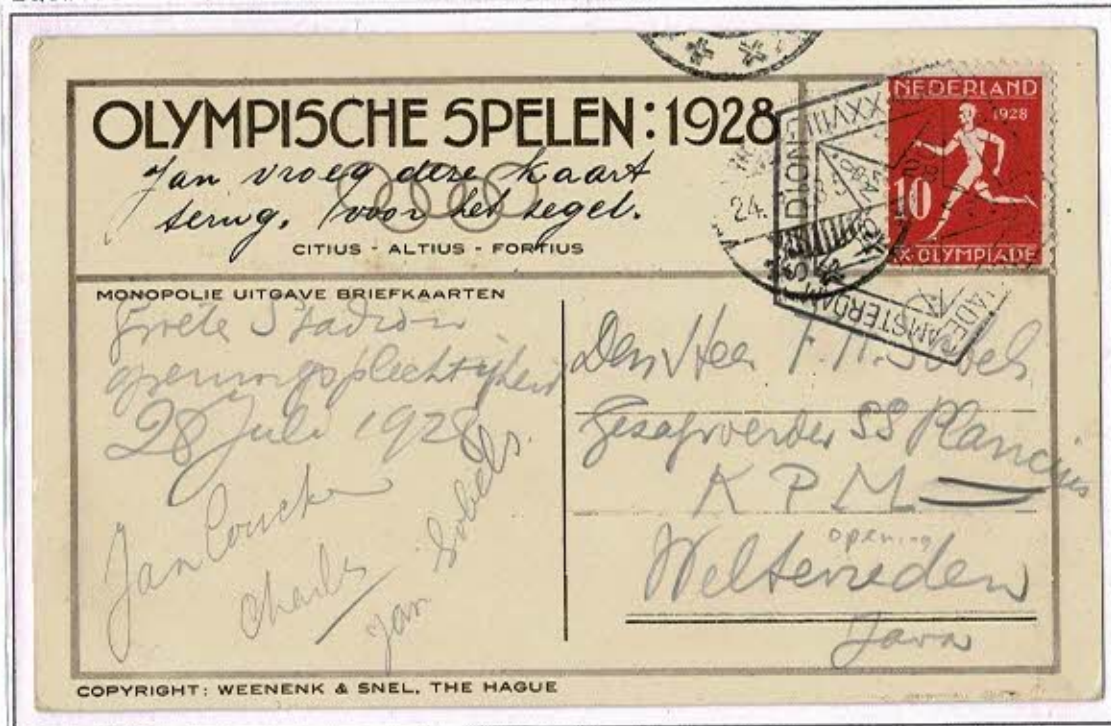 OLYMPISCHE SPELEN: 1928
Jan vroeg deze kaart
terug, voor het zegel.
CITIUS - ALTIUS - FORTIUS
NEDERLAND
1928
10
IX·OLYMPIADE
XXVIII
24.
AMSTERDAM
MONOPOLIE UITGAVE BRIEFKAARTEN
Groete Stadion
openingsplechtigheid
28 Juli 1928.
Jan
Charles
Jan Sobels
Den Heer F. H. Sobels
Gezagvoerder SS Plancius
K P M
opening
Weltevreden
Java
COPYRIGHT: WEENENK & SNEL, THE HAGUE